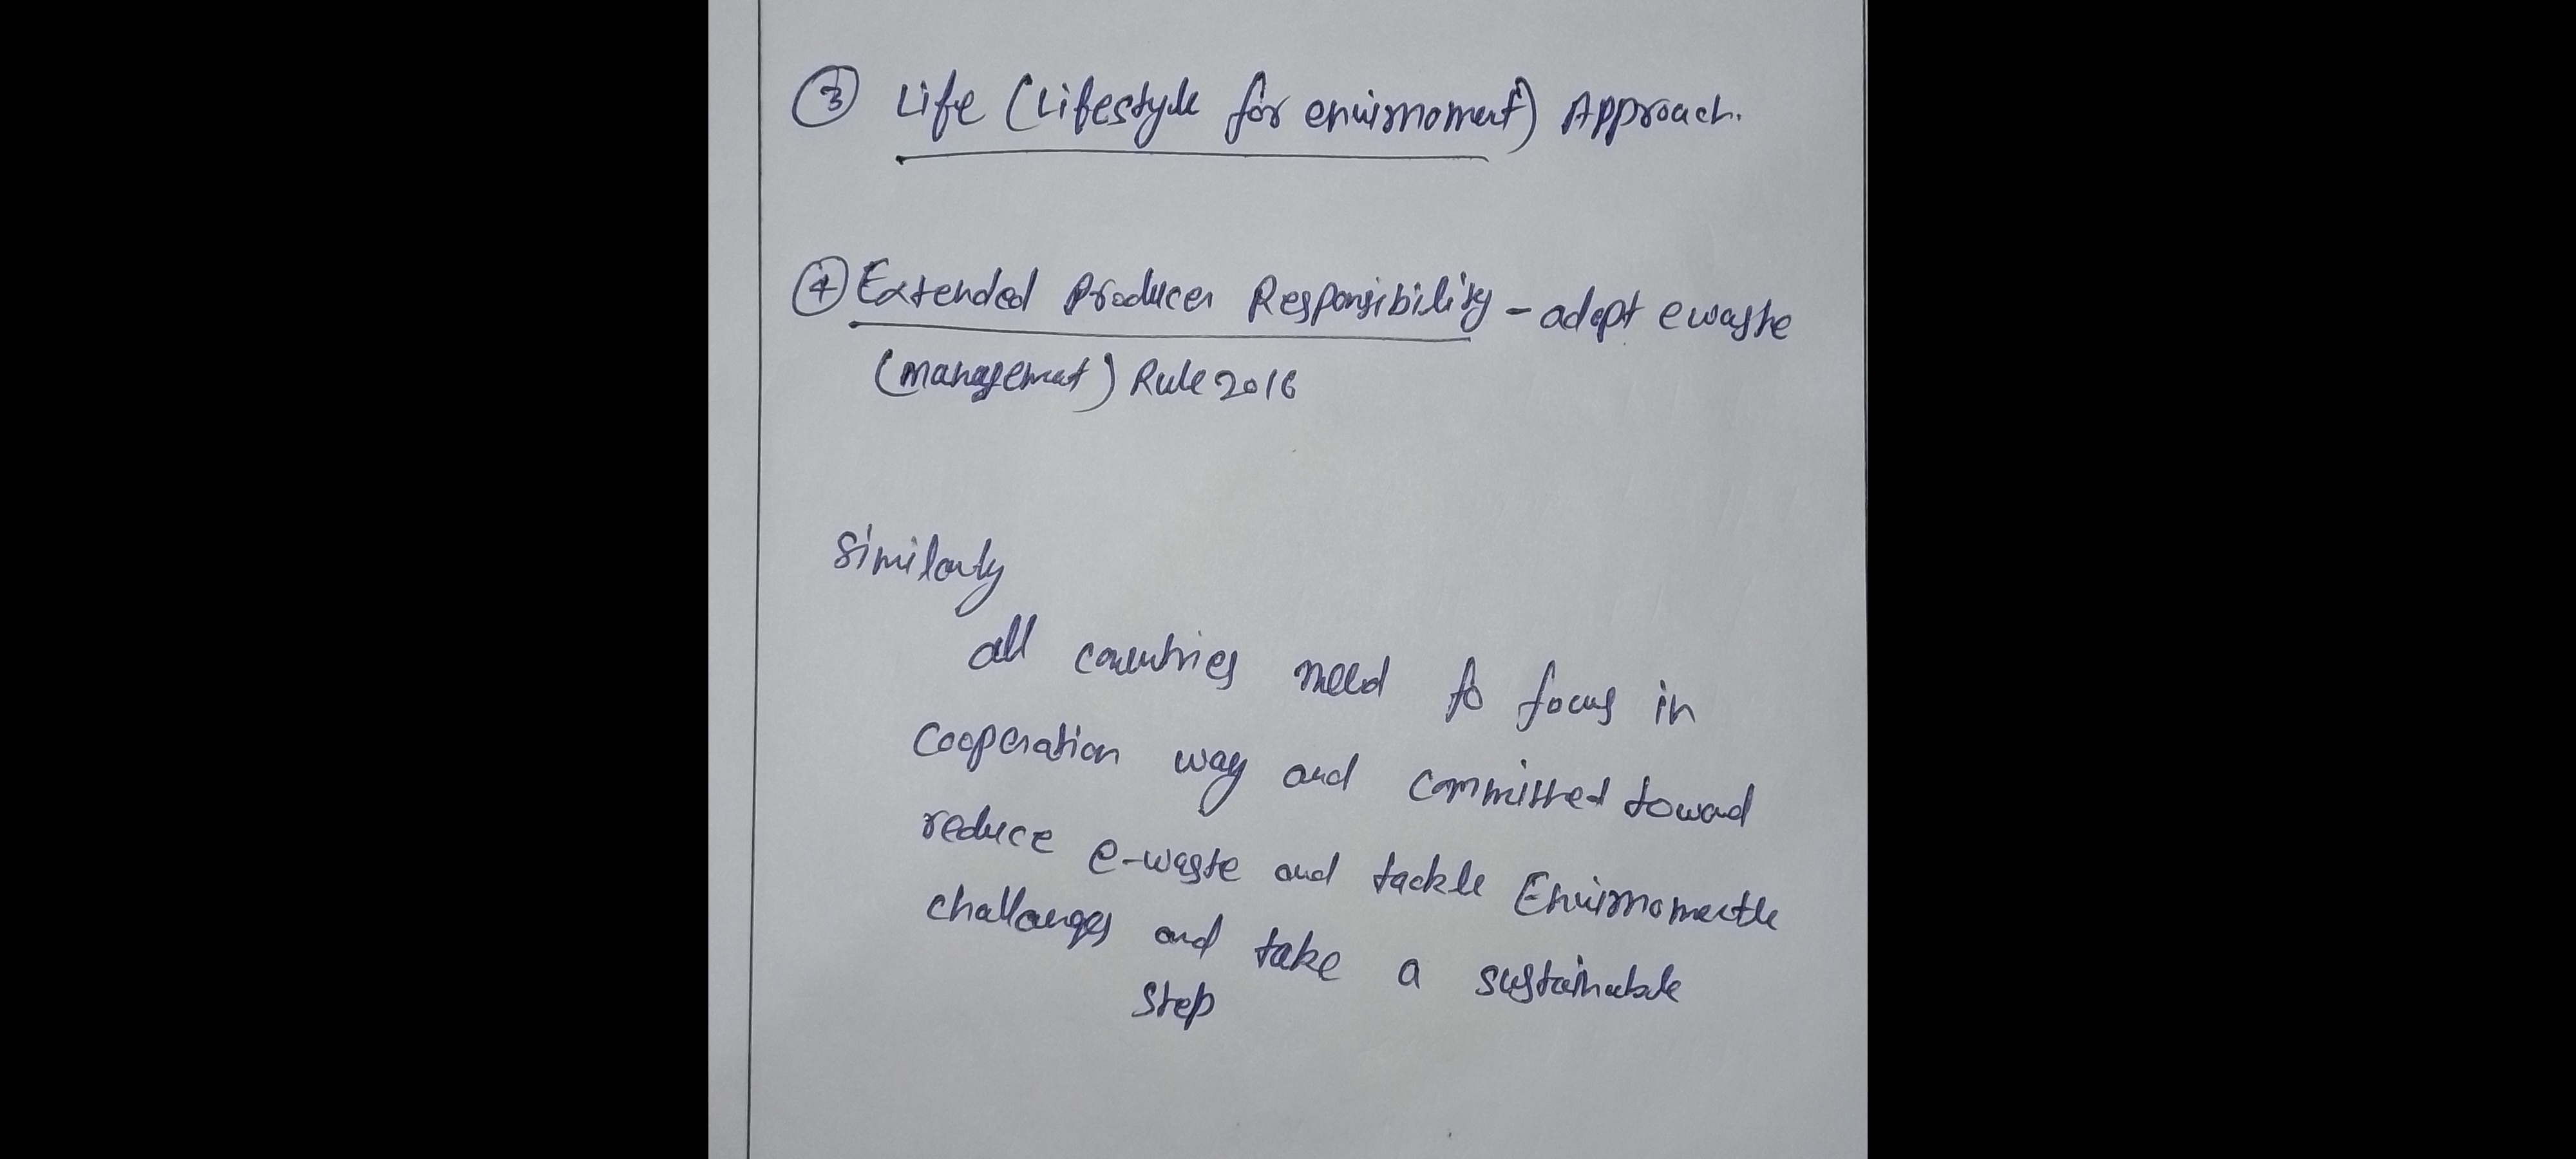 ③ Life (Lifestyle for envirnoment) Approach.
④ Extended Producer Responsibility - adopt ewaste
(management) Rule 2016
Similarly
all countries need to focus in
Cooperation way and committed toward
reduce e-waste and tackle Envirnomentle
challanges and take a sustainable
Step